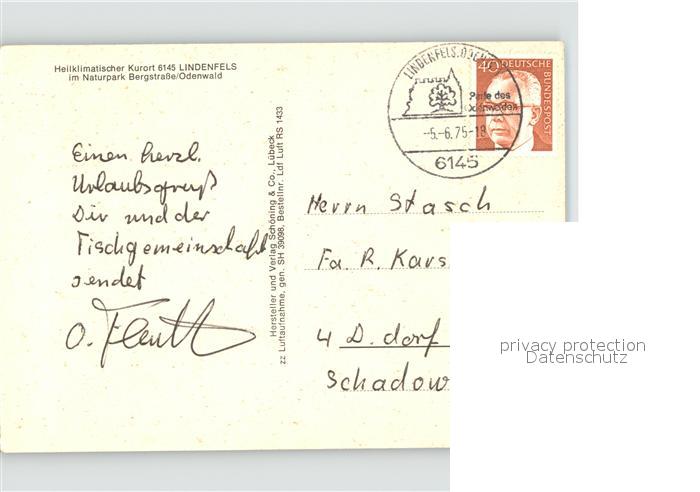 Heilklimatischer Kurort 6145 LINDENFELS
im Naturpark Bergstraße/Odenwald
Einen herzl.
Urlaubsgruß
Dir und der
Tischgemeinschaft
sendet
O.
Hersteller und Verlag Schöning & Co., Lübeck
zz Luftaufnahme, gen. SH 39098, Bestellnr. Ldf Luft RS 1433
LINDENFELS, ODENW
Perle des
Odenwaldes
-5.-6.75-18
6145
40 DEUTSCHE
BUNDESPOST
Herrn Stasch
Fa. R. Kars
4 D.dorf
Schadow
privacy protection
Datenschutz